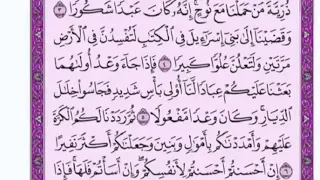 ذُرِّيَّةَ مَنْ حَمَلْنَا مَعَ نُوحٍ ۚ إِنَّهُ كَانَ عَبْدًا شَكُورًا ٣
وَقَضَيْنَا إِلَىٰ بَنِي إِسْرَائِيلَ فِي الْكِتَابِ لَتُفْسِدُنَّ فِي الْأَرْضِ
مَرَّتَيْنِ وَلَتَعْلُنَّ عُلُوًّا كَبِيرًا ٤ فَإِذَا جَاءَ وَعْدُ أُولَاهُمَا
بَعَثْنَا عَلَيْكُمْ عِبَادًا لَنَا أُولِي بَأْسٍ شَدِيدٍ فَجَاسُوا خِلَالَ
الدِّيَارِ ۚ وَكَانَ وَعْدًا مَفْعُولًا ٥ ثُمَّ رَدَدْنَا لَكُمُ الْكَرَّةَ
عَلَيْهِمْ وَأَمْدَدْنَاكُمْ بِأَمْوَالٍ وَبَنِينَ وَجَعَلْنَاكُمْ أَكْثَرَ نَفِيرًا
٦ إِنْ أَحْسَنْتُمْ أَحْسَنْتُمْ لِأَنْفُسِكُمْ ۖ وَإِنْ أَسَأْتُمْ فَلَهَا ۚ فَإِذَا